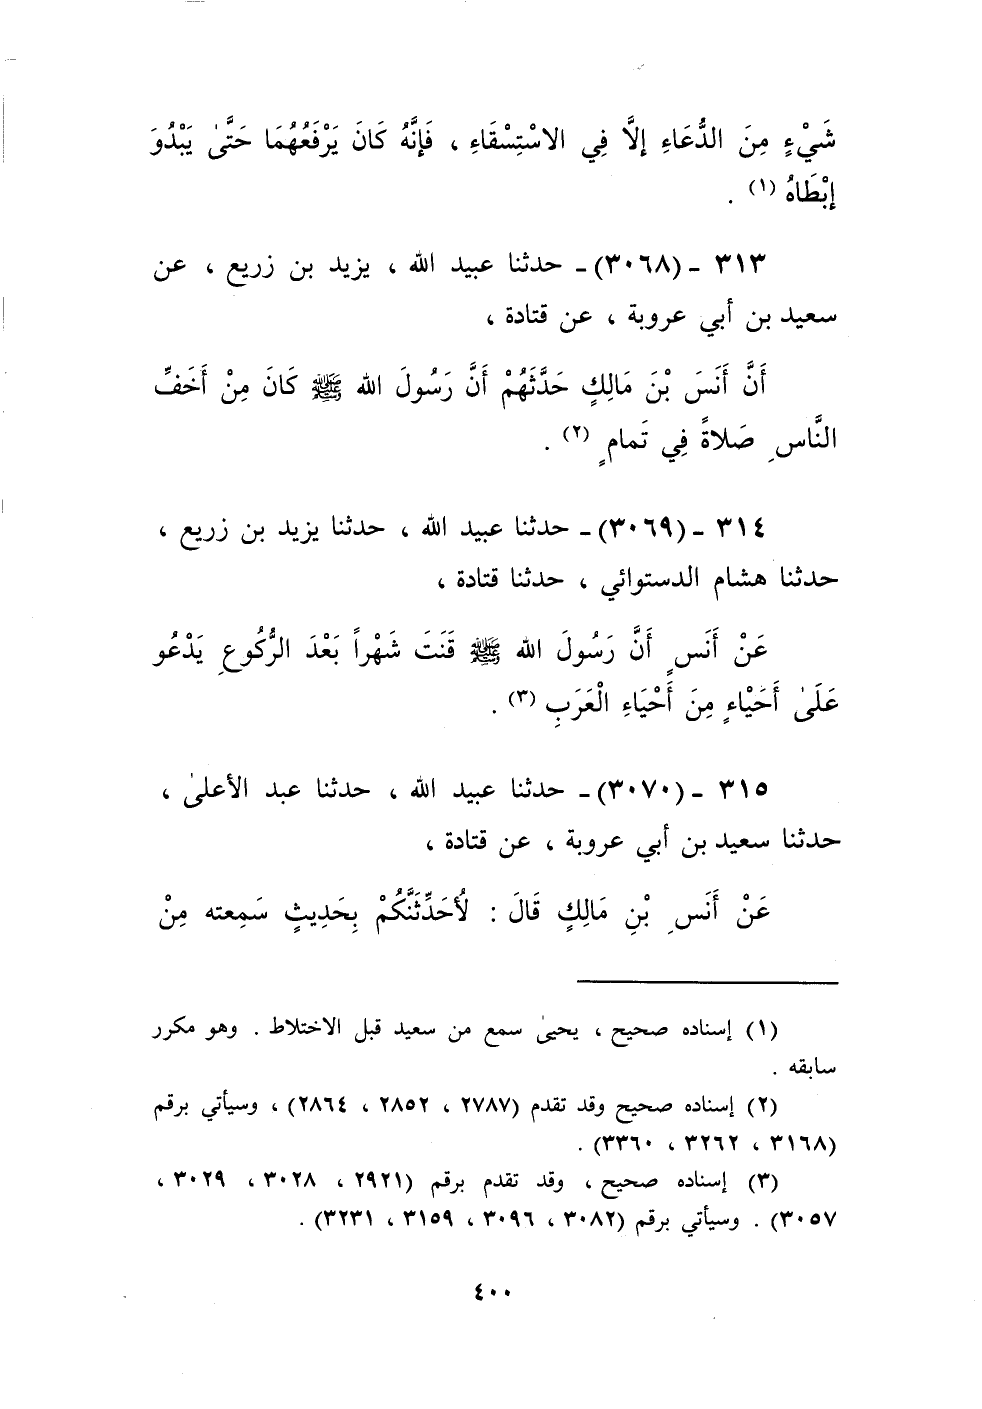 شَيْءٍ مِنَ الدُّعَاءِ إِلَّا فِي الاسْتِسْقَاءِ ، فَإِنَّهُ كَانَ يَرْفَعُهُمَا حَتَّىٰ يَبْدُوَ
إِبْطَاهُ (١) .
٣١٣ - (٣٠٦٨)- حدثنا عبيد الله ، يزيد بن زريع ، عن
سعيد بن أبي عروبة ، عن قتادة ،
أَنَّ أَنَسَ بْنَ مَالِكٍ حَدَّثَهُمْ أَنَّ رَسُولَ الله ﷺ كَانَ مِنْ أَخَفِّ
النَّاسِ صَلاةً فِي تَمامٍ (٢) .
٣١٤ - (٣٠٦٩)- حدثنا عبيد الله ، حدثنا يزيد بن زريع ،
حدثنا هشام الدستوائي ، حدثنا قتادة ،
عَنْ أَنَسٍ أَنَّ رَسُولَ الله ﷺ قَنَتَ شَهْراً بَعْدَ الرُّكُوعِ يَدْعُو
عَلَىٰ أَحْيَاءٍ مِنَ أَحْيَاءِ الْعَرَبِ (٣) .
٣١٥ - (٣٠٧٠)- حدثنا عبيد الله ، حدثنا عبد الأعلىٰ ،
حدثنا سعيد بن أبي عروبة ، عن قتادة ،
عَنْ أَنَسِ بْنِ مَالِكٍ قَالَ : لأُحَدِّثَنَّكُمْ بِحَدِيثٍ سَمِعته مِنْ
(١) إسناده صحيح ، يحيىٰ سمع من سعيد قبل الاختلاط . وهو مكرر
سابقه .
(٢) إسناده صحيح وقد تقدم (٢٧٨٧ ، ٢٨٥٢ ، ٢٨٦٤) ، وسيأتي برقم
(٣١٦٨ ، ٣٢٦٢ ، ٣٣٦٠) .
(٣) إسناده صحيح ، وقد تقدم برقم (٢٩٢١ ، ٣٠٢٨ ، ٣٠٢٩ ،
٣٠٥٧) . وسيأتي برقم (٣٠٨٢ ، ٣٠٩٦ ، ٣١٥٩ ، ٣٢٣١) .
٤٠٠